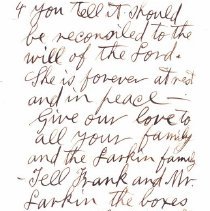 4 you tell it should
be reconciled to the
will of the Lord.
She is forever at rest
and in peace —
Give our love to
all your family
and the Larkin family
- Tell Frank and Mr.
Larkin the boxes